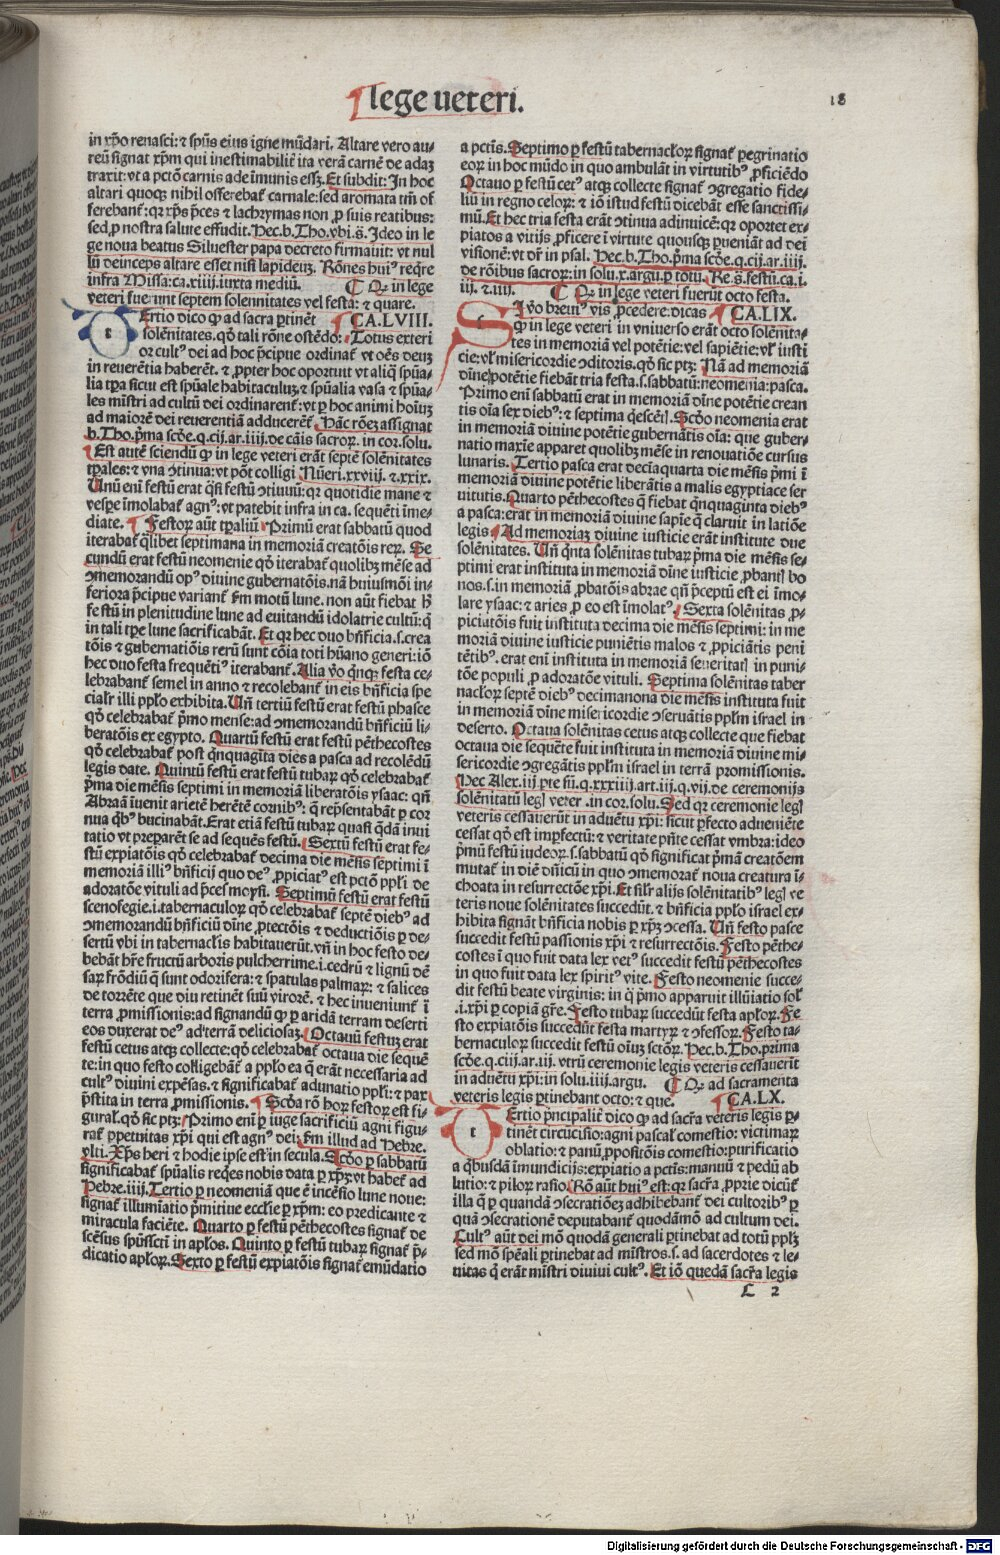 ¶ lege ueteri.
18
in xp̄o renasci: ⁊ spūs eius igne mūdari. Altare vero au-
reū signat xp̄m qui inestimabilit̄ ita verā carnē de adaꝫ
traxit: vt a pctō carnis adeĩmunis esſꝫ. Et subdit: In hoc
altari quocꝫ nihil offerebat̄ carnale: sed aromata tm̄ of
ferebant̄: qꝛ xp̄s p̄ces ⁊ lachrymas non ꝓ suis reatibus:
sed ꝓ nostra salute effudit. Hec.b.Tho.vbi.s̄. Ideo in le
ge noua beatus Siluester papa decreto firmauit: vt nul
lū deinceps altare esset nisi lapideuꝫ. Rōnes huiꝰ reqr̄e
infra Missa: ca.xiiij. iuxta mediū. ¶ Qꝛ in lege
veteri fuerunt septem solennitates vel festa: ⁊ quare.
Tertio dico ꝙ ad sacra ꝑtinēt ¶ CA.LVIII.
solēnitates. qd̄ tali rōne ostēdo: Totus exteri
or cultꝰ dei ad hoc p̄cipue ordinat̄ vt oēs deuꝫ
in reuerētia haberēt. ⁊ ꝓpter hoc oportuit vt aliq̄ spūa-
lia tp̄a sicut est spūale habitaculuꝫ ⁊ spūalia vasa ⁊ spūa-
les mīstri ad cultū dei ordinarent̄: vt ꝑ hoc animi hoīuꝫ
ad maiorē dei reuerentiā adducerēt̄. Hāc rōeꝫ assignat
b.Tho.p̄ma scd̄e.q.cij.ar.iiij.de cāis sacroꝝ. in cor.solu.
Est autē sciendū ꝙ in lege veteri erāt septē solēnitates
tp̄ales: ⁊ vna ꝯtinua: vt pōt colligi Nūeri.xxviij. ⁊ xxix.
Unū enī festū erat q̄si festū ꝯtinuū: qꝛ quotidie mane ⁊
vesꝑe īmolabat̄ agnꝰ: vt patebit infra in ca. sequēti īme-
diate. ¶ Festoꝝ aūt tp̄aliū Primū erat sabbatū quod
iterabat̄ q̄libet septimana in memoriā creatōis reꝝ. Se
cundū erat festū neomenie qd̄ iterabat̄ quolibꝫ mēse ad
ꝯmemorandū opꝰ diuine gubernatōis. nā huiusmōi in-
feriora p̄cipue variant̄ fm̄ motū lune. non aūt fiebat h̄
festū in plenitudine lune ad euitandū idolatrie cultū: q̄
in tali tp̄e lune sacrificabāt. Et qꝛ hec duo bn̄ficia.s.crea
tōis ⁊ gubernatiōis rerū sunt cōia toti hūano generi: iō
hec duo festa frequētiꝰ iterabant̄. Alia v̄o qn̄qꝫ festa ce-
lebrabant̄ semel in anno ⁊ recolebant̄ in eis bn̄ficia spe
cialr̄ illi pplo exhibita. Un̄ tertiū festū erat festū phasce
qd̄ celebrabat̄ p̄mo mense: ad ꝯmemorandū bn̄ficiū li-
beratōis ex egypto. Quartū festū erat festū pēthecostes
qd̄ celebrabat̄ post qn̄quagīta dies a pasca ad recolēdū
legis date. Quintū festū erat festū tubaꝝ qd̄ celebrabat̄
p̄ma die mēsis septimi in memoriā liberatōis ysaac. qn̄
Abraā īuenit arietē herētē cornibꝰ: q̄ rep̄sentabāt ꝑ cor
nua q̄bꝰ bucinabāt. Erat etiā festū tubaꝝ quasi q̄dā inui
tatio vt prepararēt se ad sequēs festū. Sextū festū erat fe-
stū expiatōis qd̄ celebrabat̄ decima die mēsis septimi ī
memoriā illiꝰ bn̄ficij quo deꝰ ꝓpiciatꝰ est pctō ppl̄i de
adoratōe vituli ad p̄ces moysi. Septimū festū erat festū
scenofegie.i.tabernaculoꝝ qd̄ celebrabat̄ septē diebꝰ ad
ꝯmemorandū bn̄ficiū dīne ꝓtectōis ⁊ deductōis ꝑ de-
sertū vbi in tabernacl̄is habitauerūt. vn̄ in hoc festo de-
bebāt hr̄e fructū arboris pulcherrime.i.cedrū ⁊ lignū dē
saꝝ frōdiū q̄ sunt odorifera: ⁊ spatulas palmaꝝ: ⁊ salices
de torrēte que diu retinēt suū virorē. ⁊ hec inueniunt̄ ī
terra ꝓmissionis: ad signandū ꝙ ꝑ aridā terram deserti
eos duxerat deꝰ ad terrā deliciosaꝫ. Octauū festuꝫ erat
festū cetus atqꝫ collecte: qd̄ celebrabat̄ octaua die sequē
te: in quo festo colligebāt̄ a pplo ea q̄ erāt necessaria ad
cultꝰ diuini expēsas. ⁊ significabat̄ adunatio ppl̄i: ⁊ pax
p̄stita in terra ꝓmissionis. ¶ Scd̄a rō hoꝝ festoꝝ est fi-
gural̄. qd̄ sic ptꝫ: Primo enī ꝑ iuge sacrificiū agni figu-
rat̄ ꝑpetuitas xp̄i qui est agnꝰ dei: fm illud ad Hebre.
vlti. Xp̄s heri ⁊ hodie ipse est in secula. Scd̄o ꝑ sabbatū
significabat̄ spūalis reqes nobis data ꝑ xp̄ꝫ: vt habet̄ ad
Hebre.iiij. Tertio ꝑ neomeniā que ē incēsio lune noue:
signat̄ illumīatio p̄mitiue eccl̄ie ꝑ xp̄m: eo predicante ⁊
miracula faciēte. Quarto ꝑ festū pēthecostes signat̄ de
scēsus spūssc̄ti in ap̄los. Quinto ꝑ festū tubaꝝ signat̄ p̄-
dicatio ap̄loꝝ. Sexto ꝑ festū expiatōis signat̄ emūdatio
a pctīs. Septimo ꝑ festū tabernacl̄oꝝ signat̄ ꝑegrinatio
eoꝝ in hoc mūdo in quo ambulāt in virtutibꝰ ꝓficiēdo
Octauo ꝑ festū cetꝰ atqꝫ collecte signat̄ ꝯgregatio fide-
liū in regno celoꝝ: ⁊ iō istud festū dicebāt esse sanctissi-
mū. Et hec tria festa erāt ꝯtinua adinuicē: qꝛ oportet ex-
piatos a vitijs ꝓficere ī virtute quousqꝫ ꝑueniāt ad dei
visionē: vt dr̄ in psal. Hec.b.Tho.p̄ma scd̄e.q.cij.ar.iiij.
de rōibus sacroꝝ: in solu.x.argu.ꝑ totū. Re.s̄.festū.ca.i.
iij. ⁊.iiij. ¶ Qꝛ in lege veteri fuerūt octo festa.
SI v̄o breuiꝰ vis ꝓcedere: dicas ¶ CA.LIX.
ꝙ in lege veteri in vniuerso erāt octo solēnita-
tes in memoriā vel potētie: vel sapiētie: vl̄ iusti
cie: vl̄ misericordie ꝯditoris. qd̄ sic ptꝫ: Nā ad memoriā
dīne potētie fiebāt tria festa.s.sabbatū: neomenia: pasca.
Primo enī sabbatū erat in memoriā dīne potētie crean
tis oīa sex diebꝰ: ⁊ septima qescēt̄. Scd̄o neomenia erat
in memoriā diuine potētie gubernātis oīa: que guber-
natio maxīe apparet quolibꝫ mēse in renouatiōe cursus
lunaris. Tertio pasca erat decīaquarta die mēsis p̄mi ī
memoriā diuine potētie liberātis a malis egyptiace ser
uitutis. Quarto pēthecostes q̄ fiebat qn̄quaginta diebꝰ
a pasca: erat in memoriā diuine sapīe q̄ claruit in latiōe
legis Ad memoriaꝫ diuine iusticie erāt institute due
solēnitates. Un̄ qn̄ta solēnitas tubaꝝ p̄ma die mēsis se-
ptimi erat instituta in memoriā dīne iusticie ꝓbant̄ bo
nos.s.in memoriā ꝓbatōis abrae qn̄ p̄ceptū est ei īmo-
lare ysaac: ⁊ aries ꝓ eo est īmolatꝰ. Sexta solēnitas ꝓ-
piciatōis fuit instituta decima die mēsis septimi: in me
moriā diuine iusticie puniētis malos ⁊ ꝓpiciātis peni
tētibꝰ. erat enī instituta in memoriā seueritat̄ in puni-
tōe populi ꝓ adoratōe vituli. Septima solēnitas taber
nacl̄oꝝ septē diebꝰ decimanona die mēsis instituta fuit
in memoriā dīne misericordie ꝯseruātis ppl̄m israel in
deserto. Octaua solēnitas cetus atqꝫ collecte que fiebat
octaua die sequēte fuit instituta in memoriā diuine mi-
sericordie ꝯgregātis ppl̄m israel in terrā promissionis.
Hec Alex.iij pte sū.q.xxxiiij.art.iij.q.vij.de ceremonijs
solēnitatū leḡ veter̄.in cor.solu. Sed qꝛ ceremonie leḡ
veteris cessauerūt in aduētu xp̄i: sicut ꝑfecto adueniēte
cessat qd̄ est imꝑfectū: ⁊ veritate p̄nte cessat vmbra: ideo
p̄mū festū iudeoꝝ.s.sabbatū qd̄ significat p̄mā creatōem
mutat̄ in diē dn̄icū in quo ꝯmemorat̄ noua creatura ī-
choata in resurrectōe xp̄i. Et sil̄r alijs solēnitatibꝰ leḡ ve
teris noue solēnitates succedūt. ⁊ bn̄ficia pplo israel ex-
hibita signāt bn̄ficia nobis ꝑ xp̄ꝫ ꝯcessa. Un̄ festo pasce
succedit festū passionis xp̄i ⁊ resurrectōis. Festo pēthe-
costes ī quo fuit data lex vetꝰ succedit festū pēthecostes
in quo fuit data lex spiritꝰ vite. Festo neomenie succe-
dit festū beate virginis: in q̄ p̄mo apparuit illūiatio sol̄
.i.xp̄i ꝑ copiā gr̄e. Festo tubaꝝ succedūt festa ap̄loꝝ. Fe
sto expiatōis succedūt festa martyꝝ ⁊ ꝯfessoꝝ. Festo ta-
bernaculoꝝ succedit festū oīuꝫ sc̄toꝝ. Hec.b.Tho.prima
scd̄e.q.ciij.ar.iij.vtrū ceremonie legis veteris cessauerīt
in aduētu xp̄i: in solu.iiij.argu. ¶ Qꝛ ad sacramenta
veteris legis ꝑtinebant octo: ⁊ que. ¶ CA.LX.
Tertio p̄ncipalit̄ dico ꝙ ad sacr̄a veteris legis ꝑ-
tinēt circūcisio: agni pascal̄ comestio: victimaꝝ
oblatio: ⁊ panū ꝓpositōis comestio: purificatio
a q̄busdā īmundicijs: expiatio a pctīs: manuū ⁊ pedū ab
lutio: ⁊ piloꝝ rasio. Rō aūt huiꝰ est: qꝛ sacr̄a ꝓprie dicūt̄
illa q̄ ꝑ quandā ꝯsecratiōeꝫ adhibebant̄ dei cultoribꝰ ꝑ
quā ꝯsecrationē deputabant̄ quodāmō ad cultum dei.
Cultꝰ aūt dei mō quodā generali ꝑtinebat ad totū pplꝫ
sed mō spēali ꝑtinebat ad mīstros.s. ad sacerdotes ⁊ le-
uitas q̄ erāt mīstri diuini cultꝰ. Et iō quedā sacr̄a legis
L 2
Digitalisierung gefördert durch die Deutsche Forschungsgemeinschaft - DFG